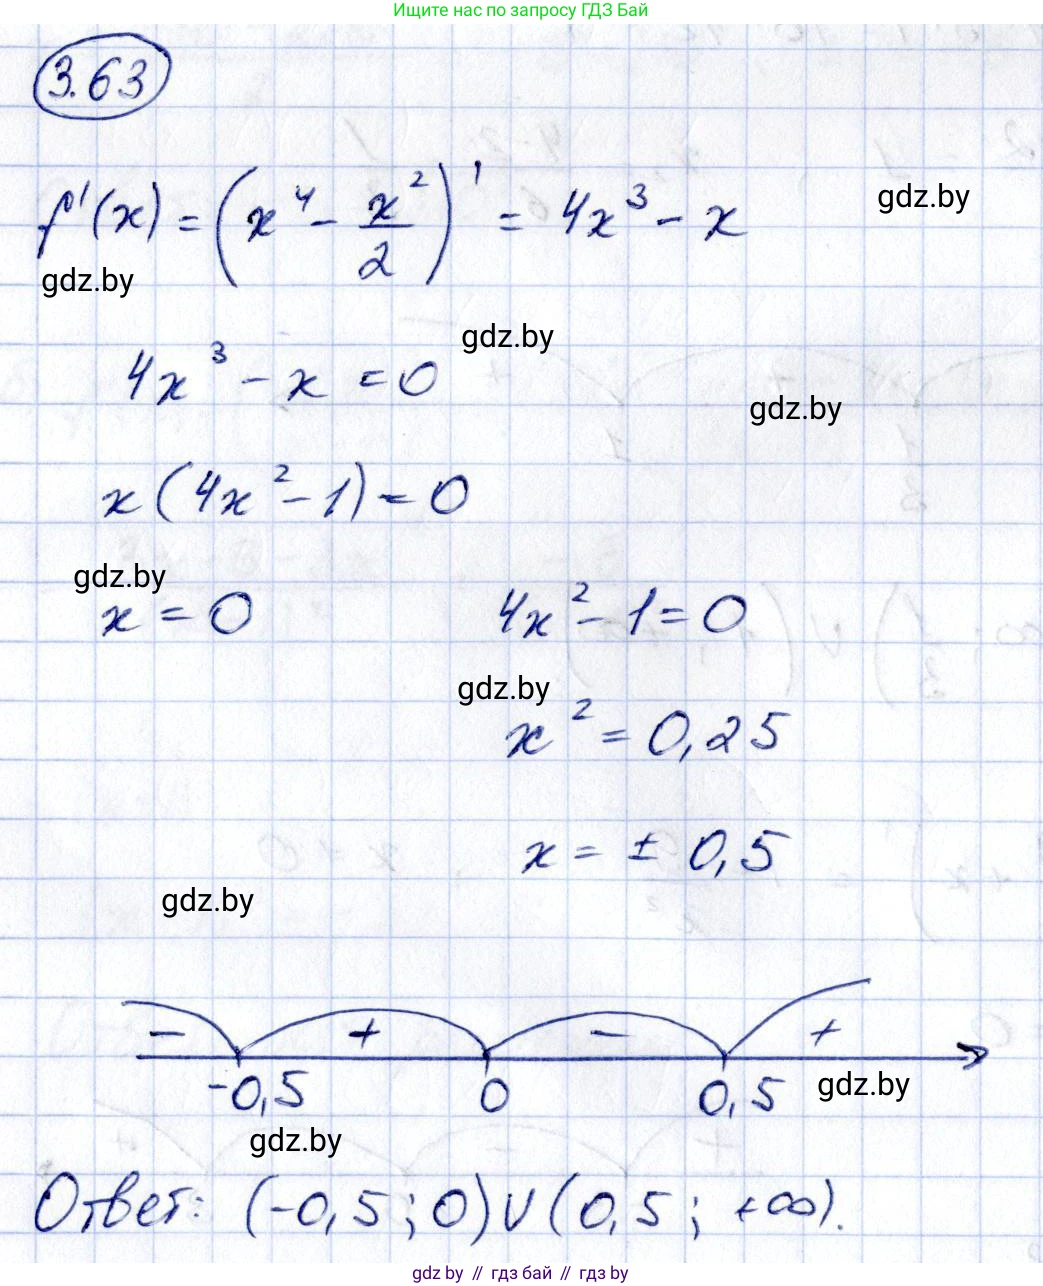 Ищите нас по запросу ГДЗ Бай
3.63
f'(x) = (x⁴ - x²/2)' = 4x³ - x
gdz.by
gdz.by
gdz.by
4x³ - x = 0
gdz.by
x(4x² - 1) = 0
gdz.by
x = 0 4x² - 1 = 0
gdz.by
x² = 0,25
x = ± 0,5
gdz.by
- + - +
-0,5 0 0,5
gdz.by
gdz.by
Ответ: (-0,5; 0) ∪ (0,5; +∞).
gdz.by // гдз бай // гдз by